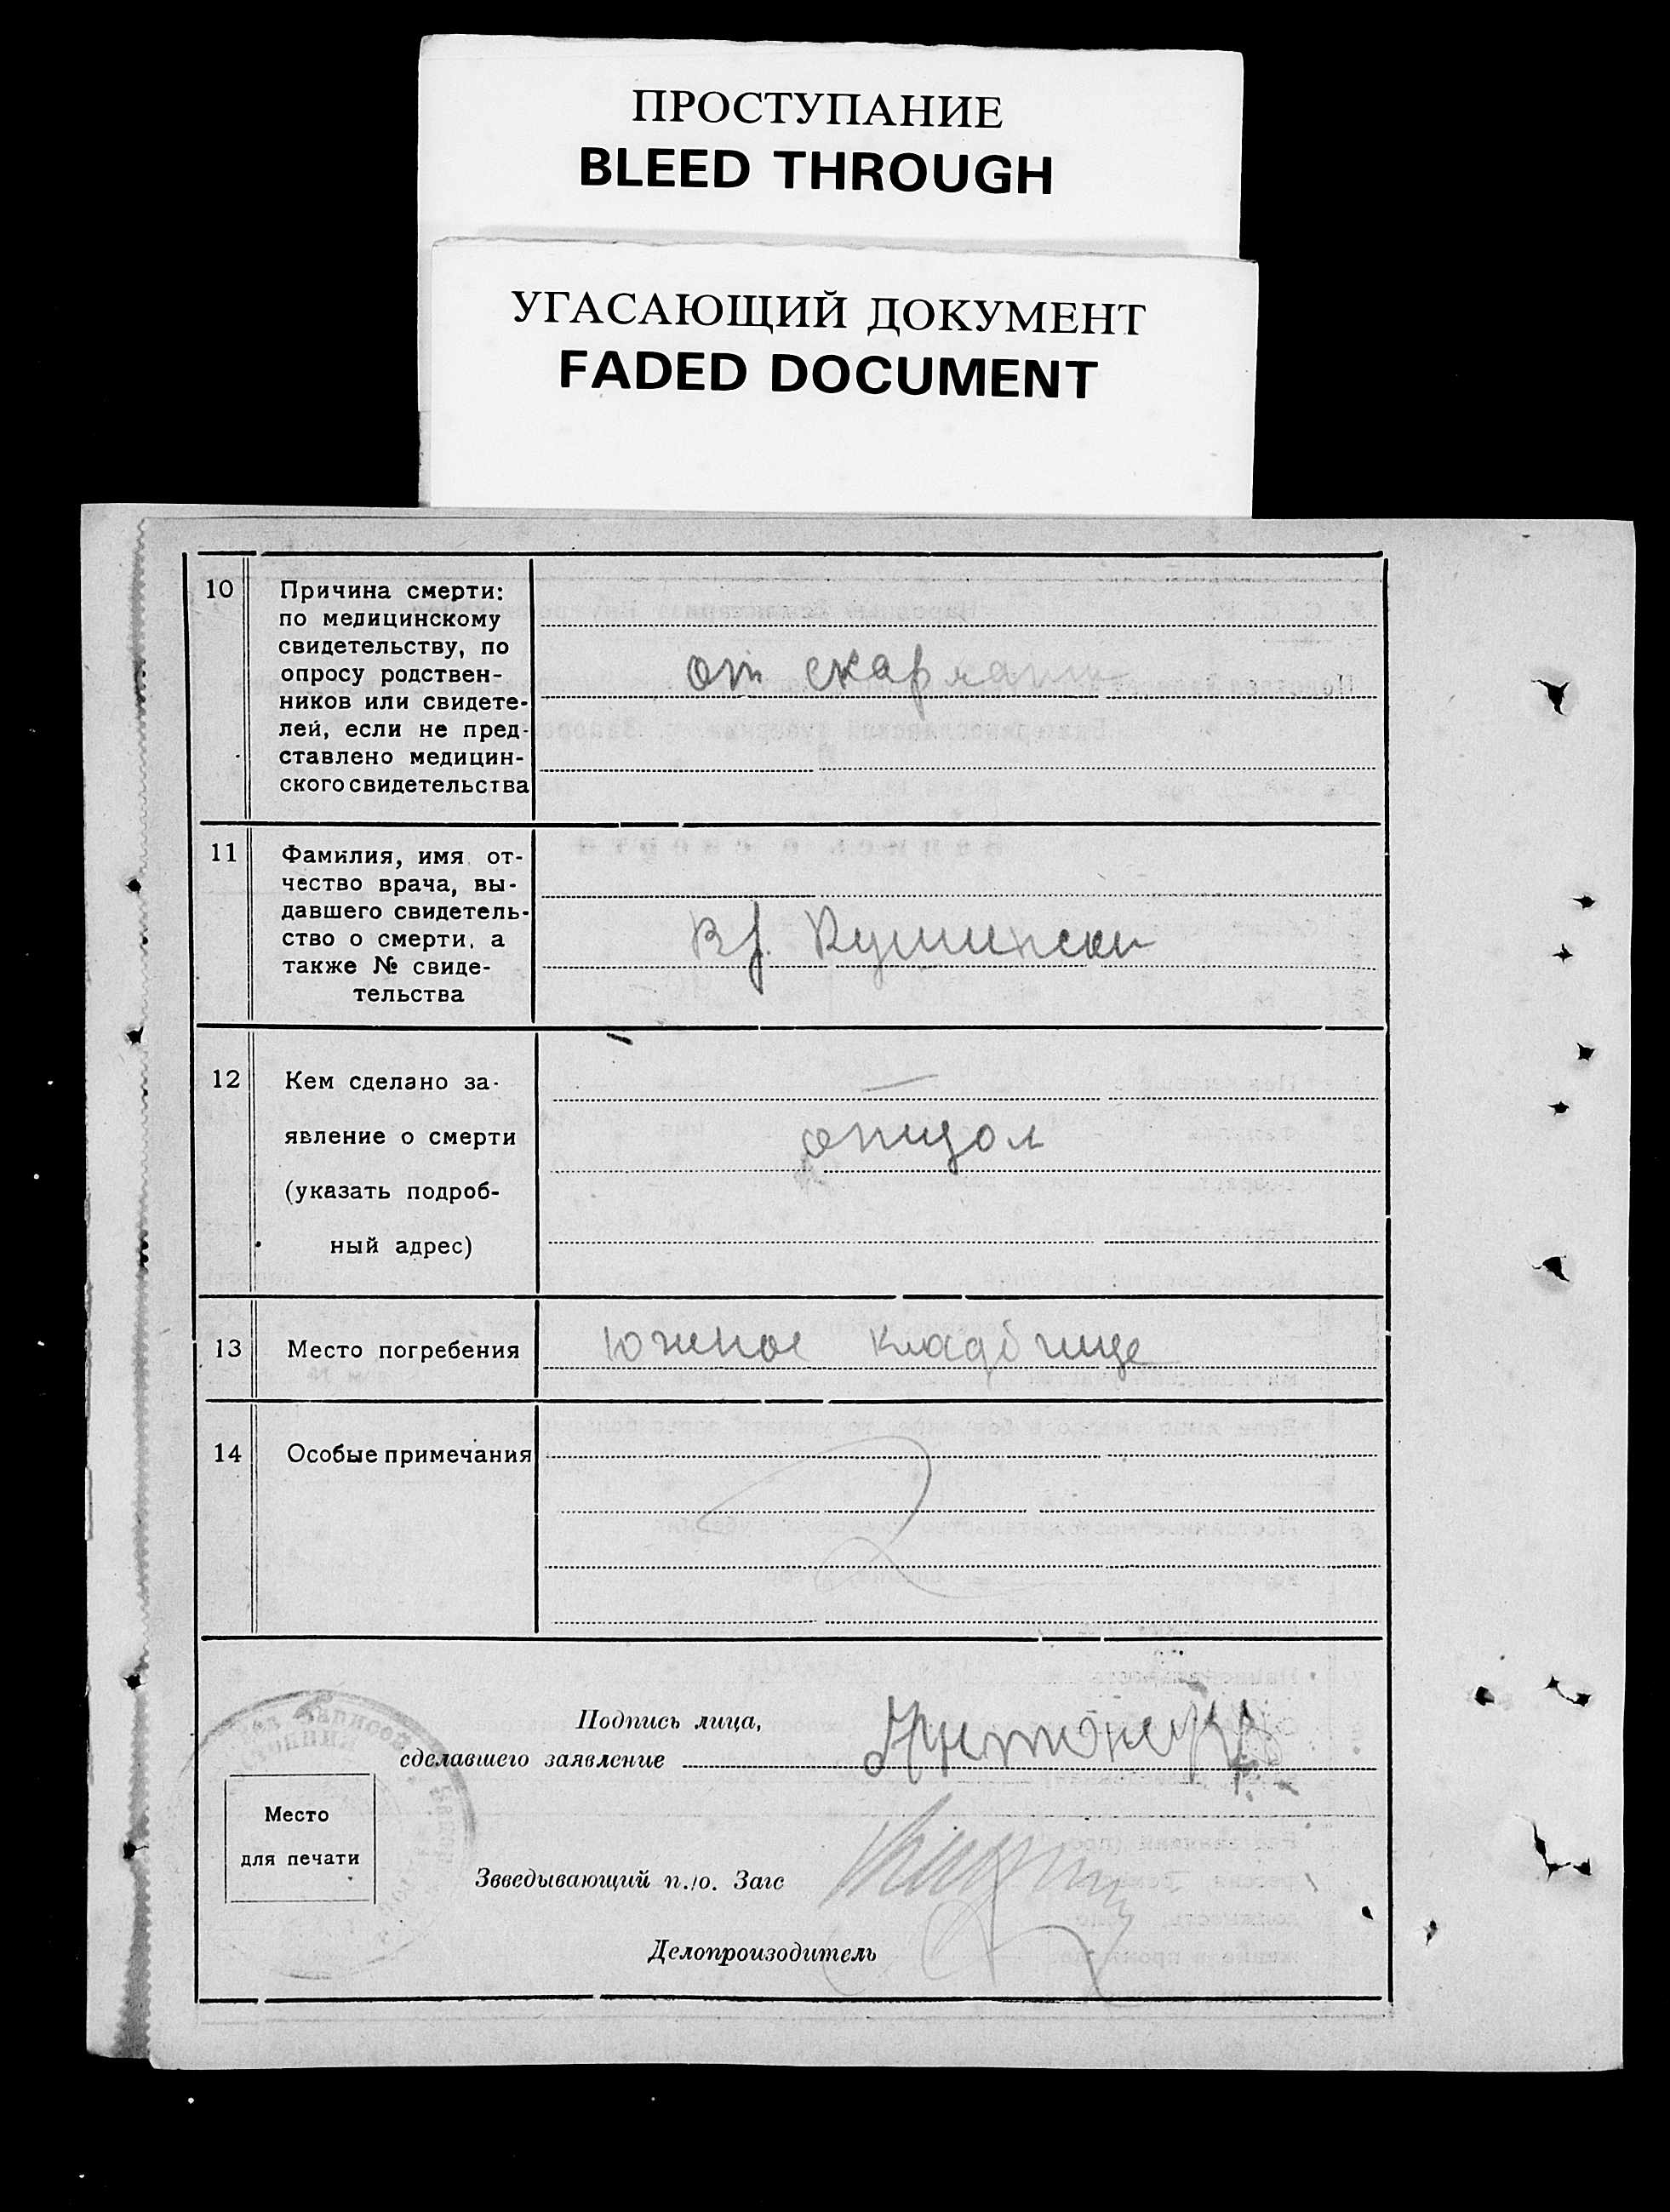 ПРОСТУПАНИЕ
BLEED THROUGH
УГАСАЮЩИЙ ДОКУМЕНТ
FADED DOCUMENT
10
Причина смерти:
по медицинскому
свидетельству, по
опросу родствен-
ников или свидете-
лей, если не пред-
ставлено медицин-
ского свидетельства
от скарлатин
11
Фамилия, имя от-
чество врача, вы-
давшего свидетель-
ство о смерти, а
также № свиде-
тельства
Вр.
12
Кем сделано за-
явление о смерти
(указать подроб-
ный адрес)
отцом
13
Место погребения
Южное кладбище
14
Особые примечания
Подпись лица,
сделавшего заявление
Место
для печати
Зв́ведывающий п./о. Загс
Делопроизводитель